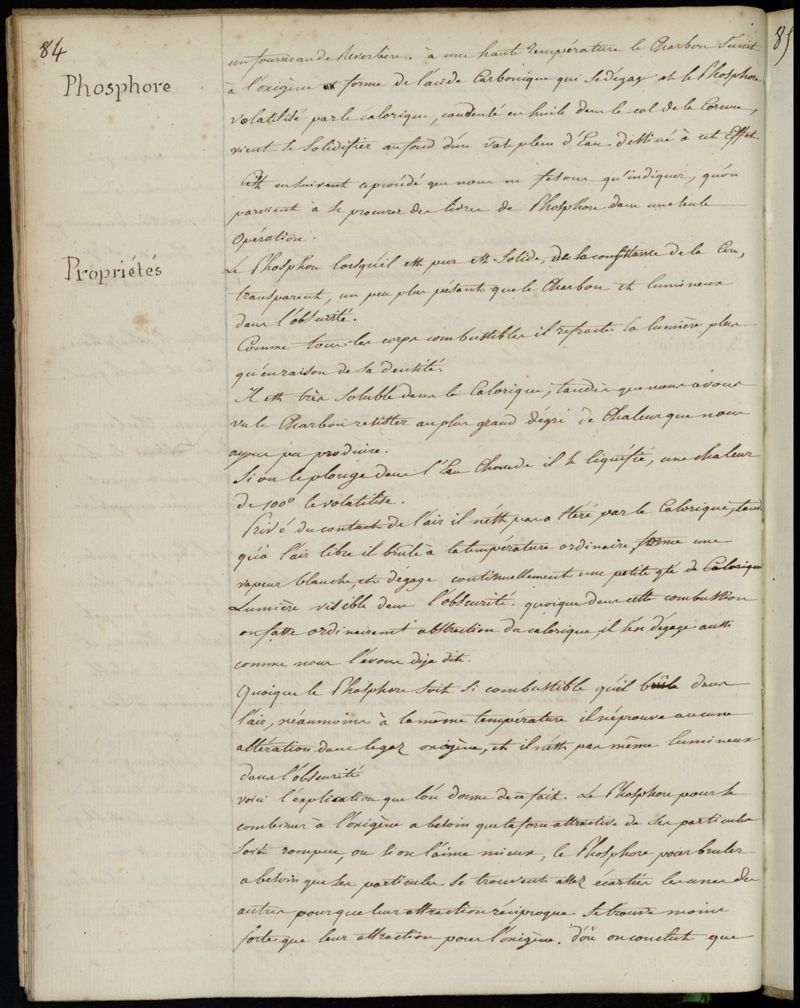 84
85
Phosphore
un fourneau de Reverbère. à une haute température le Charbon s'unit
à l'oxigène forme de l'acide Carbonique qui se dégage et le Phosphore
volatilisé par le calorique, condensé en huile dans le col de la Cornue,
vient se solidifier au fond d'un vase plein d'Eau destiné à cet Effet.
C'est en suivant ce procédé que nous ne fesons qu'indiquer, qu'on
parvient à se procurer des livres de Phosphore dans une seule
Opération.
Propriétés
Le Phosphore lorsqu'il est pur est solide, de la consistance de la Cire,
transparent, un peu plus pésant que le Charbon et lumineux
dans l'obscurité.
Comme tous les corps combustibles il refracte la lumière plus
qu'en raison de sa densité.
Il est très soluble dans le Calorique, tandis que nous avons
vu le Charbon resister au plus grand dégré de Chaleur que nous
ayons pu produire.
Si on le plonge dans l'Eau Chaude il se liquéfie, une chaleur
de 100° le volatilise.
Privé du contact de l'air il n'est pas altéré par le Calorique, tandis
qu'à l'air libre il brule à la température ordinaire, forme une
vapeur blanche, et dégage continuellement une petite qté de Calorique
Lumière visible dans l'obscurité. quoique dans cette combustion
on fasse ordinairement abstraction du calorique, il s'en dégage aussi
comme nous l'avons déja dit.
Quoique le Phosphore soit si combustible qu'il brûle dans
l'air, néanmoins à la même température il n'éprouve aucune
altération dans le gaz oxigène, et il n'est pas même lumineux
dans l'obscurité
voici l'explication que l'on donne de ce fait. Le Phosphore pour se
combiner à l'oxigène a besoin que la force attractive de ses particules
soit rompue, ou si on l'aime mieux, le Phosphore pour bruler
a besoin que ses particules se trouvent assez écartées les unes des
autres pour que leur attraction réciproque se trouve moins
forte que leur attraction pour l'oxigène. D'où on conclut que